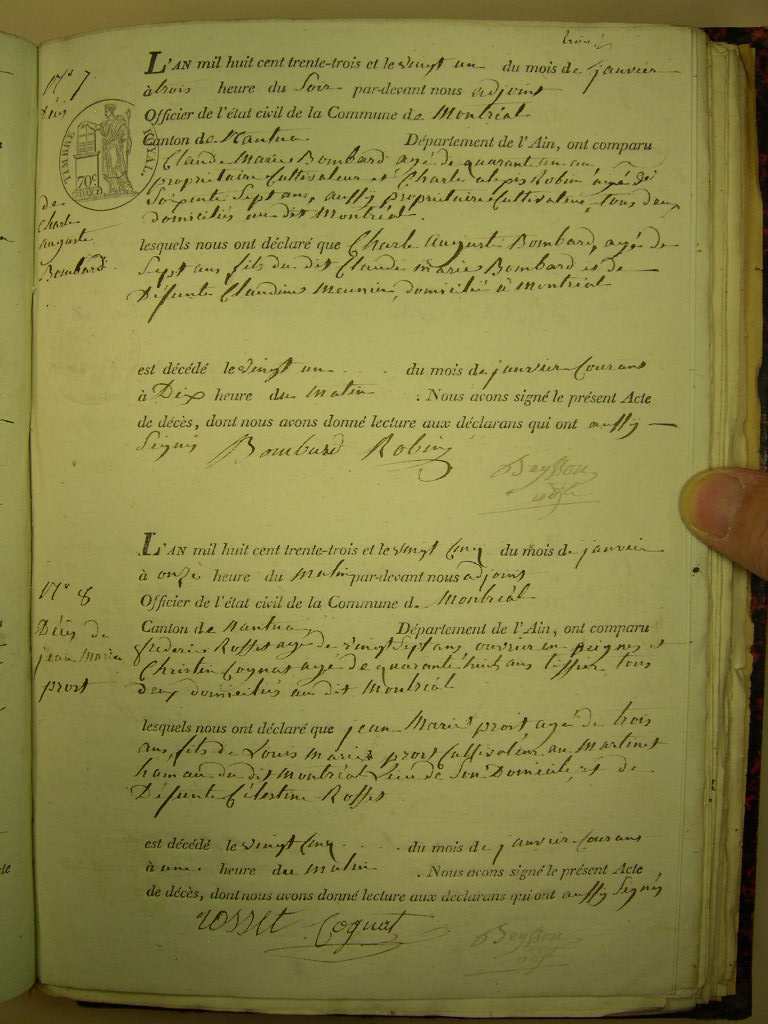 N° 7
Décès
de
Charle
auguste
Bombard
TIMBRE ROYAL
70 c
L'AN mil huit cent trente-trois et le vingt un du mois de janvier
à trois heure du Soir par-devant nous adjoint
Officier de l'état civil de la Commune de Montréal
Canton de Nantua Département de l'Ain, ont comparu
Claude Marie Bombard agé de quarant un an
propriétaire Cultivateur et Charle Robin agé de
Soixente Sept ans, aussy propriétaire Cultivateur, tous deux
domiciliés au dit Montréal.
lesquels nous ont déclaré que Charle Auguste Bombard, agé de
Sept ans fils du dit Claude marie Bombard et de
Défunte Claudine Meunier, domicilié à Montréal
est décédé le vingt un du mois de janvier Courant
à Dix heure du Matin . Nous avons signé le présent Acte
de décès, dont nous avons donné lecture aux déclarans qui ont aussy
Signés Bombard Robin
Beysson
N° 8
Décès de
jean Marie
prost
L'AN mil huit cent trente-trois et le vingt Cinq du mois de janvier
à onze heure du Matin par-devant nous adjoint
Officier de l'état civil de la Commune de Montréal
Canton de Nantua Département de l'Ain, ont comparu
frederic Rosset agé de vingt Sept ans, ouvrier en peignes et
Christin Cognat agé de quarante huit ans tous
deux domiciliés au dit Montréal
lesquels nous ont déclaré que jean Marie prost agé de trois
ans, fils de Louis Marie prost Cultivateur au Martinet
hamau du dit Montréal Lieu de Son Domicile, et de
Défunte Célestine Rosset
est décédé le vingt Cinq du mois de janvier Courant
à une heure du Matin . Nous avons signé le présent Acte
de décès, dont nous avons donné lecture aux déclarans qui ont aussy Signés
rosset Cognat Beysson